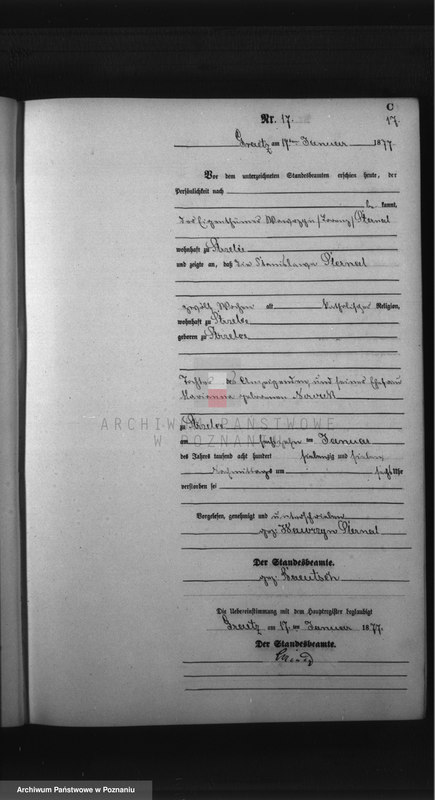 C
Nr. 17.
17.
Graetz am 17ten Januar 1877
Vor dem unterzeichneten Standesbeamten erschien heute, der
Persönlichkeit nach
be kannt,
der Eigenthümer Wawrzyn /Lorenz/ Piernal
wohnhaft zu
und zeigte an, daß die Stanislawa Piernal
zwölf Wochen alt katholischer Religion,
wohnhaft zu
geboren zu
Tochter des Anzeigenden und seiner Ehefrau
Marianna geborenen Nowak
ARCHIWUM PAŃSTWOWE
W POZNANIU
zu
am fünfzehnten Januar
des Jahres tausend acht hundert siebenzig und sieben
Nachmittags um sechs Uhr
verstorben sei
Vorgelesen, genehmigt und unterschrieben
gez. Wawrzyn Piernal
Der Standesbeamte.
gez.
Die Uebereinstimmung mit dem Hauptregister beglaubigt
Graetz am 17ten Januar 1877.
Der Standesbeamte.
Archiwum Państwowe w Poznaniu